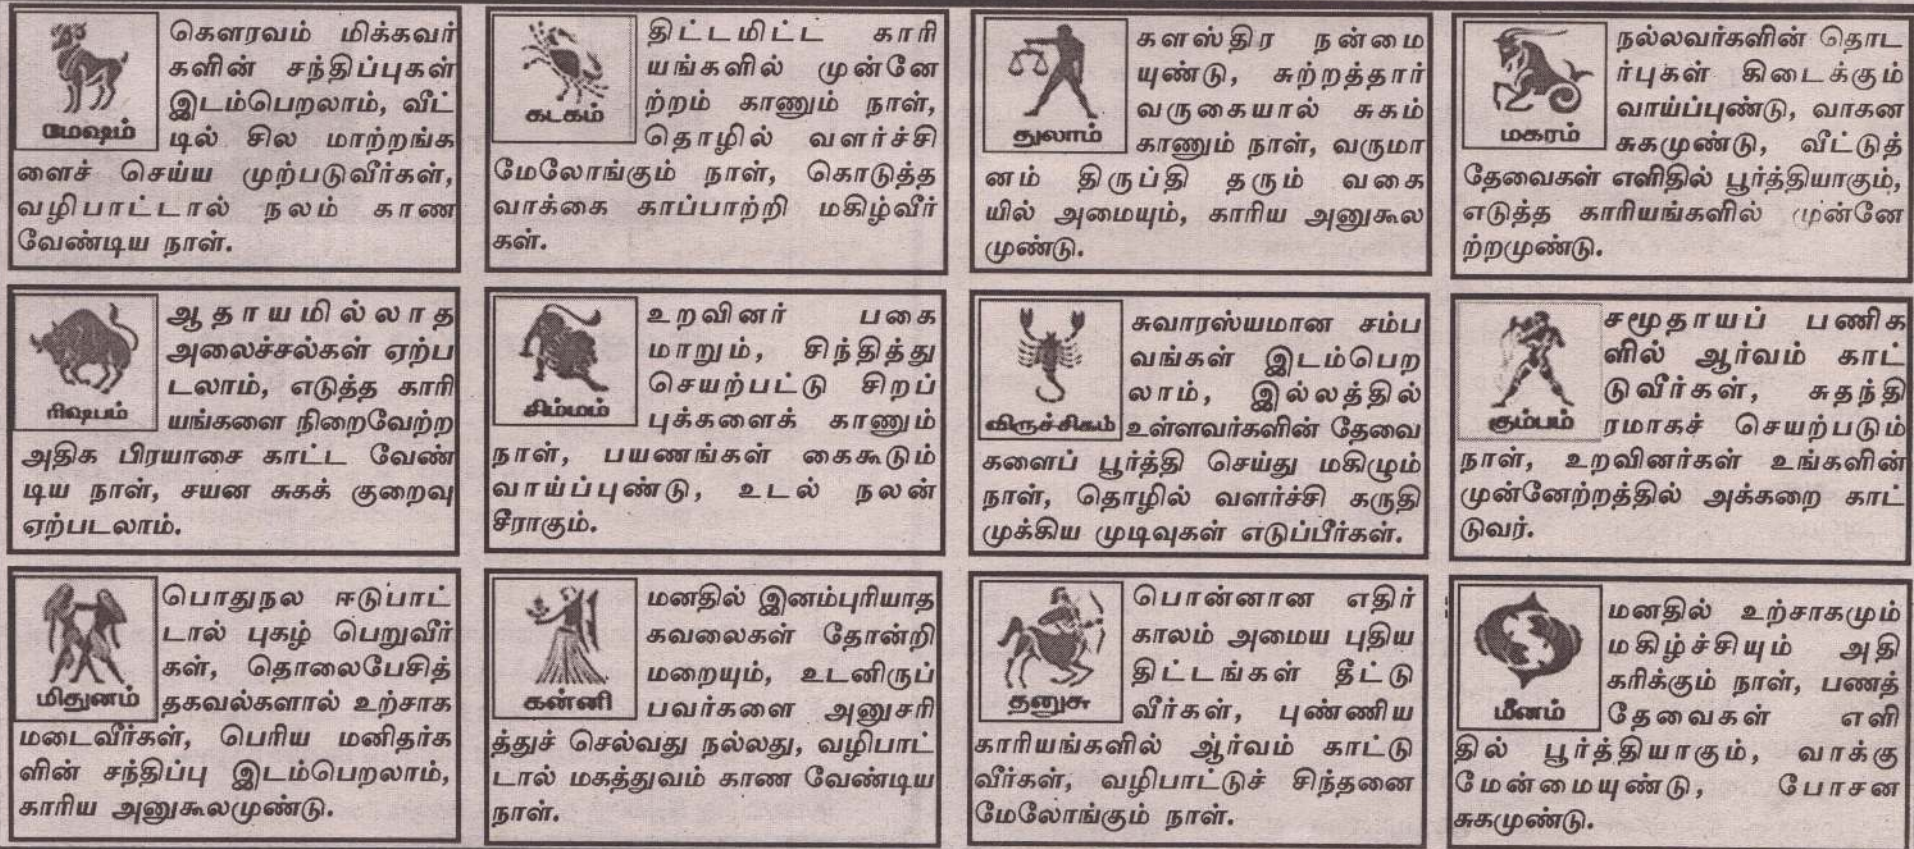 மேஷம்
கௌரவம் மிக்கவர்
களின் சந்திப்புகள்
இடம்பெறலாம், வீட்
டில் சில மாற்றங்க
ளைச் செய்ய முற்படுவீர்கள்,
வழிபாட்டால் நலம் காண
வேண்டிய நாள்.
ரிஷபம்
ஆதாயமில்லாத
அலைச்சல்கள் ஏற்ப
டலாம், எடுத்த காரி
யங்களை நிறைவேற்ற
அதிக பிரயாசை காட்ட வேண்
டிய நாள், சயன சுகக் குறைவு
ஏற்படலாம்.
மிதுனம்
பொதுநல ஈடுபாட்
டால் புகழ் பெறுவீர்
கள், தொலைபேசித்
தகவல்களால் உற்சாக
மடைவீர்கள், பெரிய மனிதர்க
ளின் சந்திப்பு இடம்பெறலாம்,
காரிய அனுகூலமுண்டு.
கடகம்
திட்டமிட்ட காரி
யங்களில் முன்னே
ற்றம் காணும் நாள்,
தொழில் வளர்ச்சி
மேலோங்கும் நாள், கொடுத்த
வாக்கை காப்பாற்றி மகிழ்வீர்
கள்.
சிம்மம்
உறவினர் பகை
மாறும், சிந்தித்து
செயற்பட்டு சிறப்
புக்களைக் காணும்
நாள், பயணங்கள் கைகூடும்
வாய்ப்புண்டு, உடல் நலன்
சீராகும்.
கன்னி
மனதில் இனம்புரியாத
கவலைகள் தோன்றி
மறையும், உடனிருப்
பவர்களை அனுசரி
த்துச் செல்வது நல்லது, வழிபாட்
டால் மகத்துவம் காண வேண்டிய
நாள்.
துலாம்
களஸ்திர நன்மை
யுண்டு, சுற்றத்தார்
வருகையால் சுகம்
காணும் நாள், வருமா
னம் திருப்தி தரும் வகை
யில் அமையும், காரிய அனுகூல
முண்டு.
விருச்சிகம்
சுவாரஸ்யமான சம்ப
வங்கள் இடம்பெற
லாம், இல்லத்தில்
உள்ளவர்களின் தேவை
களைப் பூர்த்தி செய்து மகிழும்
நாள், தொழில் வளர்ச்சி கருதி
முக்கிய முடிவுகள் எடுப்பீர்கள்.
தனுசு
பொன்னான எதிர்
காலம் அமைய புதிய
திட்டங்கள் தீட்டு
வீர்கள், புண்ணிய
காரியங்களில் ஆர்வம் காட்டு
வீர்கள், வழிபாட்டுச் சிந்தனை
மேலோங்கும் நாள்.
மகரம்
நல்லவர்களின் தொட
ர்புகள் கிடைக்கும்
வாய்ப்புண்டு, வாகன
சுகமுண்டு, வீட்டுத்
தேவைகள் எளிதில் பூர்த்தியாகும்,
எடுத்த காரியங்களில் முன்னே
ற்றமுண்டு.
கும்பம்
சமூதாயப் பணிக
ளில் ஆர்வம் காட்
டுவீர்கள், சுதந்தி
ரமாகச் செயற்படும்
நாள், உறவினர்கள் உங்களின்
முன்னேற்றத்தில் அக்கறை காட்
டுவர்.
மீனம்
மனதில் உற்சாகமும்
மகிழ்ச்சியும் அதி
கரிக்கும் நாள், பணத்
தேவைகள் எளி
தில் பூர்த்தியாகும், வாக்கு
மேன்மையுண்டு, போசன
சுகமுண்டு.